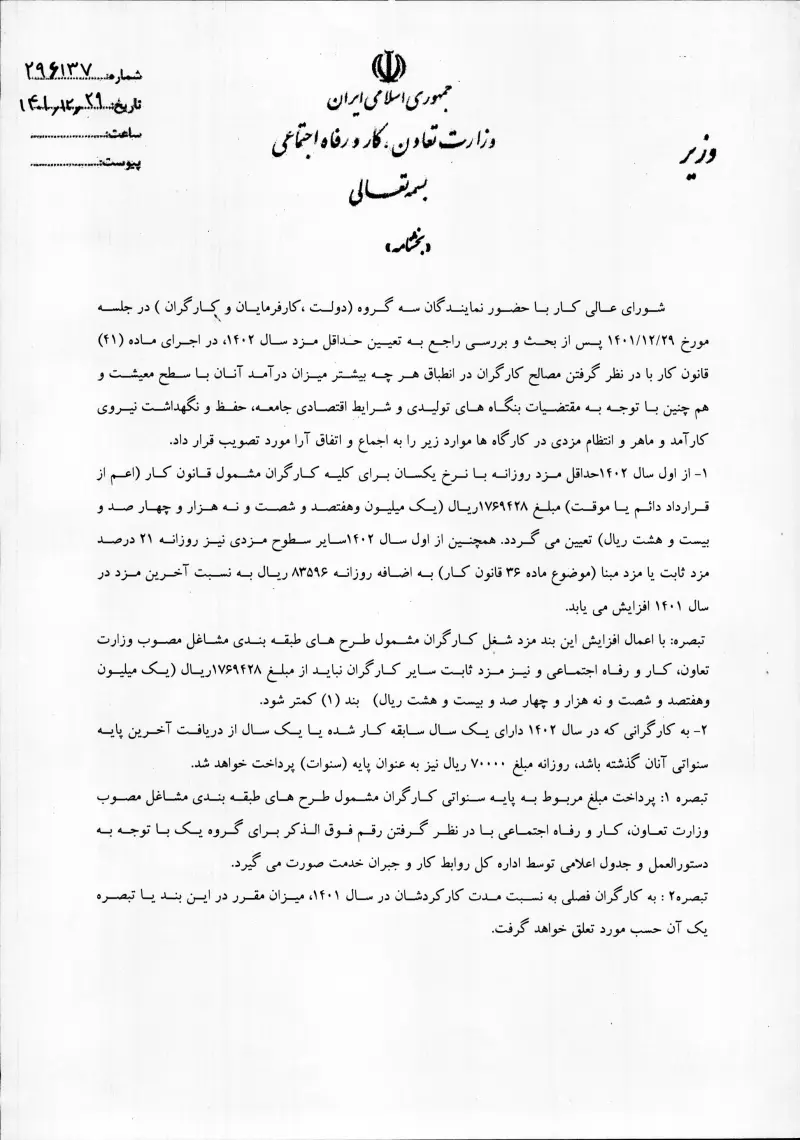 شماره: ۲۹۶۱۳۷
تاریخ: ۱۴۰۱/۱۲/۲۹
ساعت:
پیوست:
جمهوری اسلامی ایران
وزارت تعاون، کار و رفاه اجتماعی
وزیر
بسمه تعالی
«بخشنامه»
شورای عالی کار با حضور نمایندگان سه گروه (دولت ،کارفرمایان و کارگران ) در جلسه
مورخ ۱۴۰۱/۱۲/۲۹ پس از بحث و بررسی راجع به تعیین حداقل مزد سال ۱۴۰۲، در اجرای ماده (۴۱)
قانون کار با در نظر گرفتن مصالح کارگران در انطباق هر چه بیشتر میزان درآمد آنان با سطح معیشت و
هم چنین با توجه به مقتضیات بنگاه های تولیدی و شرایط اقتصادی جامعه، حفظ و نگهداشت نیروی
کارآمد و ماهر و انتظام مزدی در کارگاه ها موارد زیر را به اجماع و اتفاق آرا مورد تصویب قرار داد.
۱- از اول سال ۱۴۰۲حداقل مزد روزانه با نرخ یکسان برای کلیه کارگران مشمول قانون کار (اعم از
قرارداد دائم یا موقت) مبلغ ۱۷۶۹۴۲۸ریال (یک میلیون وهفتصد و شصت و نه هزار و چهار صد و
بیست و هشت ریال) تعیین می گردد. همچنین از اول سال ۱۴۰۲سایر سطوح مزدی نیز روزانه ۲۱ درصد
مزد ثابت یا مزد مبنا (موضوع ماده ۳۶ قانون کار) به اضافه روزانه ۸۳۵۹۶ ریال به نسبت آخرین مزد در
سال ۱۴۰۱ افزایش می یابد.
تبصره: با اعمال افزایش این بند مزد شغل کارگران مشمول طرح های طبقه بندی مشاغل مصوب وزارت
تعاون، کار و رفاه اجتماعی و نیز مزد ثابت سایر کارگران نباید از مبلغ ۱۷۶۹۴۲۸ریال (یک میلیون
وهفتصد و شصت و نه هزار و چهار صد و بیست و هشت ریال) بند (۱) کمتر شود.
۲- به کارگرانی که در سال ۱۴۰۲ دارای یک سال سابقه کار شده یا یک سال از دریافت آخرین پایه
سنواتی آنان گذشته باشد، روزانه مبلغ ۷۰۰۰۰ ریال نیز به عنوان پایه (سنوات) پرداخت خواهد شد.
تبصره ۱: پرداخت مبلغ مربوط به پایه سنواتی کارگران مشمول طرح های طبقه بندی مشاغل مصوب
وزارت تعاون، کار و رفاه اجتماعی با در نظر گرفتن رقم فوق الذکر برای گروه یک با توجه به
دستورالعمل و جدول اعلامی توسط اداره کل روابط کار و جبران خدمت صورت می گیرد.
تبصره۲ : به کارگران فصلی به نسبت مدت کارکردشان در سال ۱۴۰۱، میزان مقرر در این بند یا تبصره
یک آن حسب مورد تعلق خواهد گرفت.